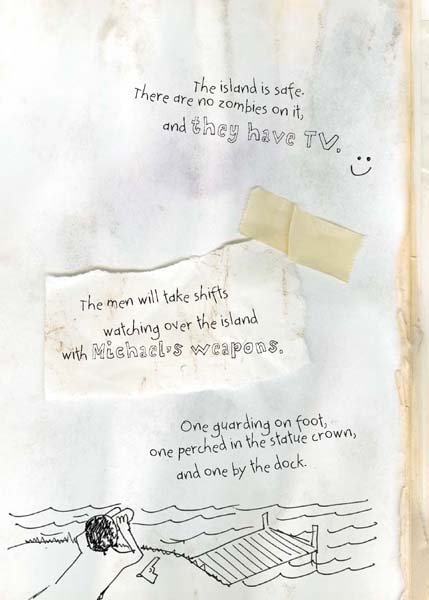 The island is safe.
There are no zombies on it,
and they have TV.
The men will take shifts
watching over the island
with Michael's weapons.
One guarding on foot,
one perched in the statue crown,
and one by the dock.